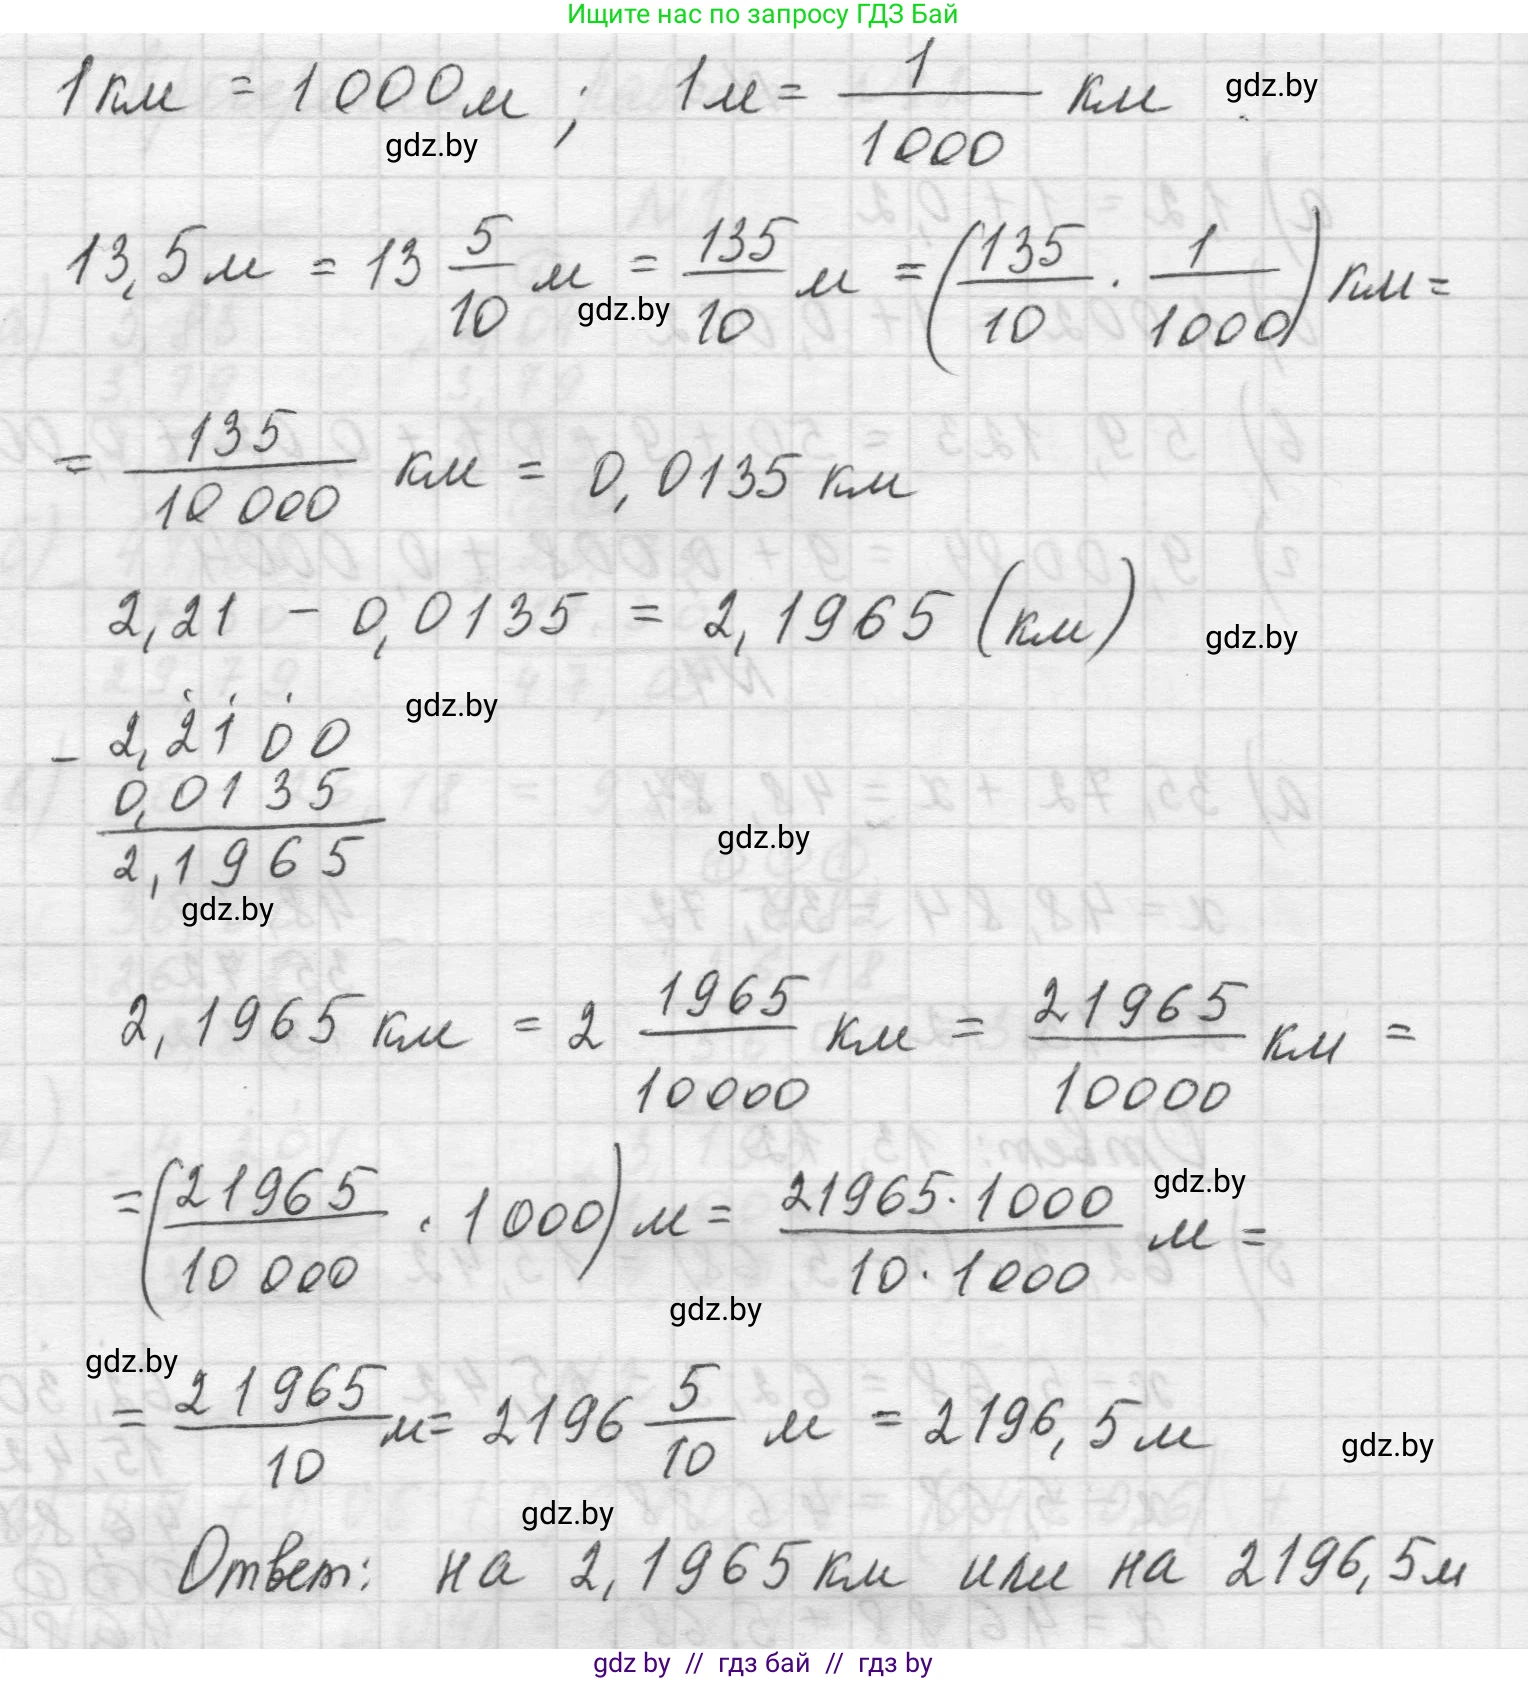 Ищите нас по запросу ГДЗ Бай
1 км = 1000 м ; 1 м = 1/1000 км gdz.by
gdz.by
13,5 м = 13 5/10 м = 135/10 м = (135/10 · 1/1000) км =
gdz.by
= 135/10 000 км = 0,0135 км
2,21 - 0,0135 = 2,1965 (км) gdz.by
gdz.by
- 2,2100
0,0135
2,1965
gdz.by
gdz.by
2,1965 км = 2 1965/10000 км = 21965/10000 км =
= (21965/10 000 · 1000) м = 21965·1000/10·1000 м = gdz.by
gdz.by
gdz.by
= 21965/10 м = 2196 5/10 м = 2196,5 м
gdz.by
gdz.by
Ответ: на 2,1965 км или на 2196,5 м
gdz by // гдз бай // гдз by